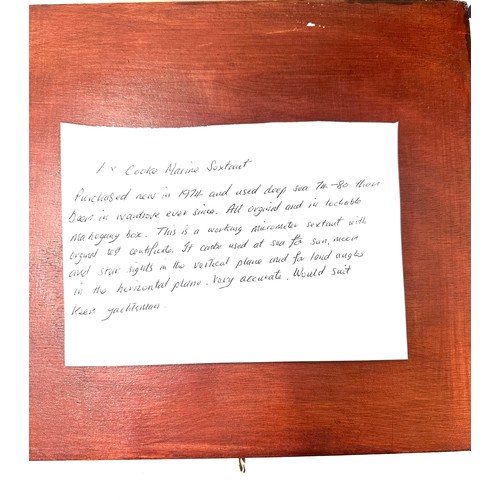 1 x Cooke Marine Sextant
Purchased new in 1974 and used deep sea 74-80 then
been in wardrobe ever since. All orginal and in lockable
Mahogany box. This is a working micrometer sextant with
orginal test certificate. It can be used at sea for sun, moon
and star sights in the vertical plane and for land angles
in the horizontal plane. Very accurate. Would suit
keen yachtsman.